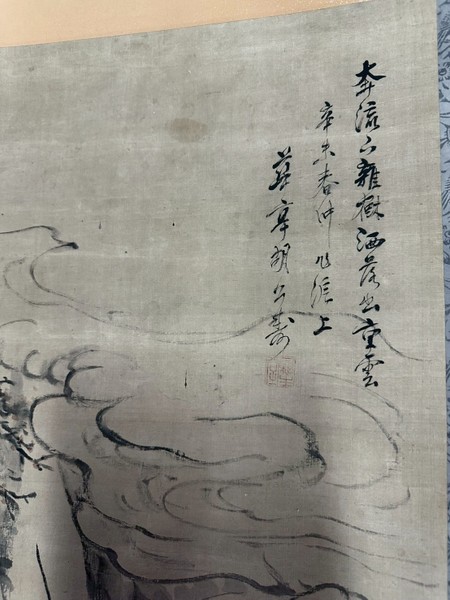 奔流下雜樹洒落出重雲
辛未春仲作滬上
華亭胡公壽